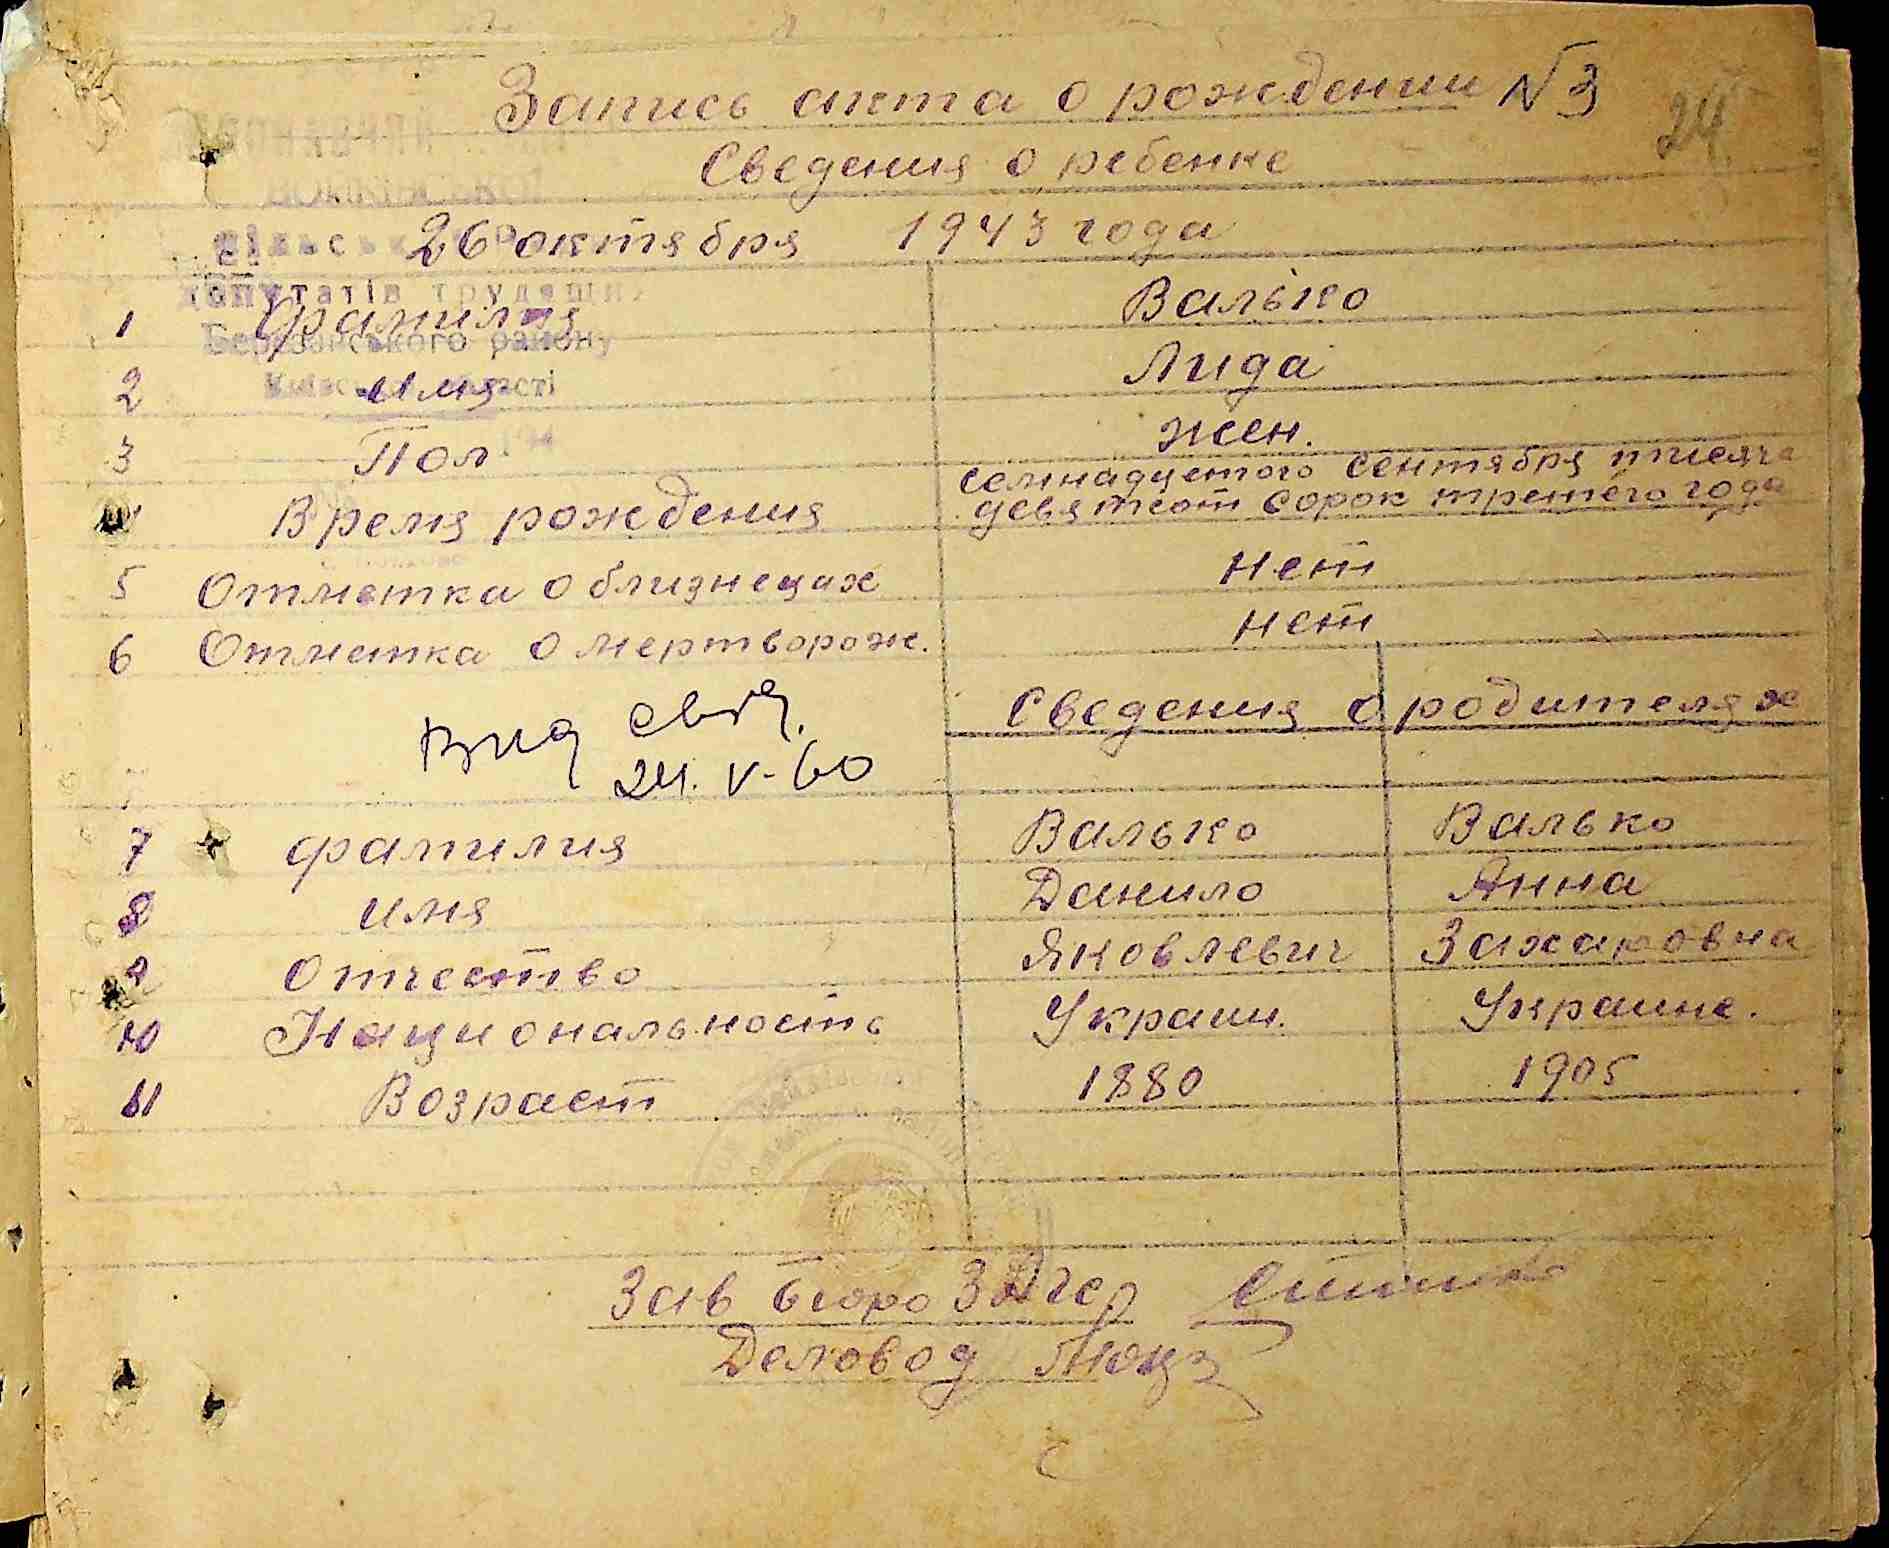 Запись акта о рождении N 3
24
Сведения о ребенке
26 октября 1943 года
депутатів трудящих
Березанського району
1 Фамилия Валько
2 Имя Лида
3 Пол жен.
4 Время рождения семнадцетого сентября тисяча девятсот сорок третего года
5 Отметка о близнецах нет
6 Отметка о мертворож. нет
Сведения о родителях
24. V-60
7 фамилия Валько Валько
8 имя Данило Анна
9 Отчество Яковлевич Захаровна
10 Национальность Украин. Украинс.
11 Возраст 1880 1905
Зав бюро ЗАГср
Деловод